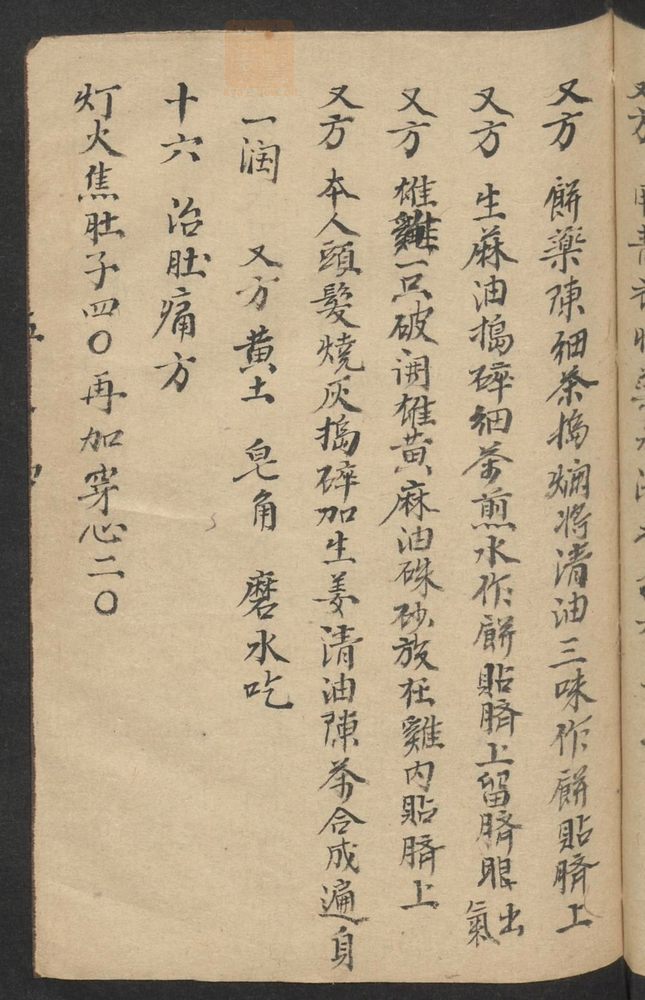 又方 餅藥陳細茶搗爛將清油三味作餅貼臍上
又方 生麻油搗碎細茶煎水作餅貼臍上留臍眼出氣
又方 雄雞一只破開雄黄麻油硃砂放在雞内貼臍上
又方 本人頭髮燒灰搗碎加生姜清油陳茶合成遍身
一润 又方黄土 皂角 磨水吃
十六 治肚痛方
灯火焦肚子四〇再加穿心二〇